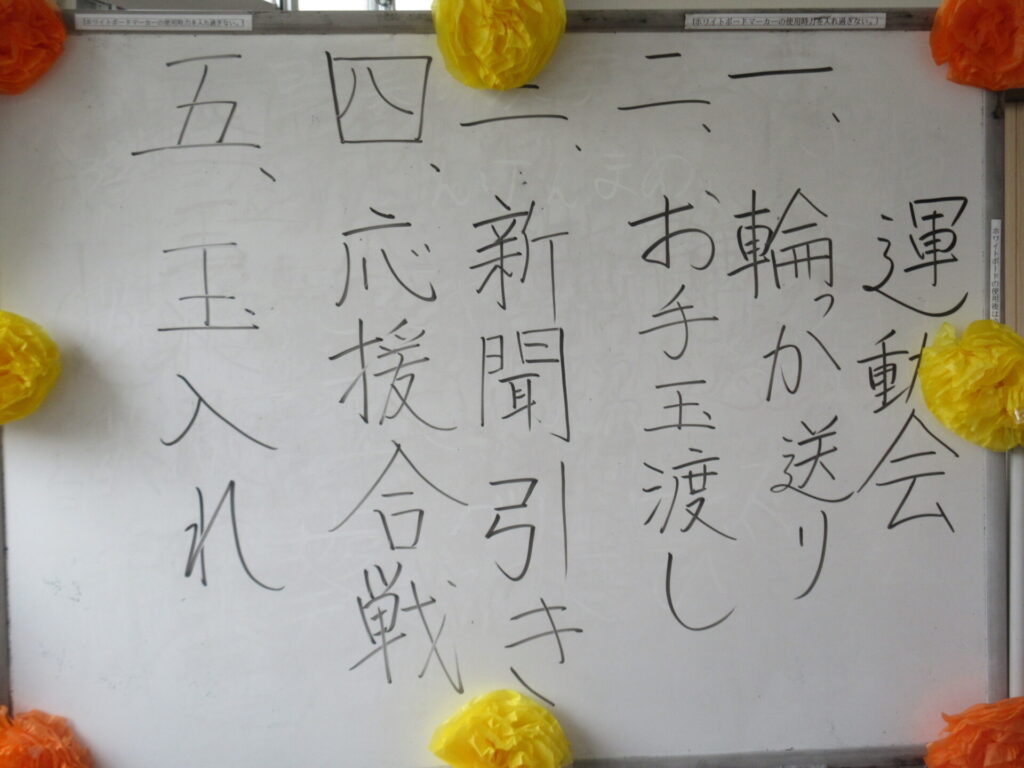 運動会
一、輪っか送り
二、お手玉渡し
三、新聞引き
四、応援合戦
五、玉入れ
(ホワイトボードマーカーの使用時力を入れ過ぎない。)
(ホワイトボードマーカーの使用時力を入れ過ぎない。)